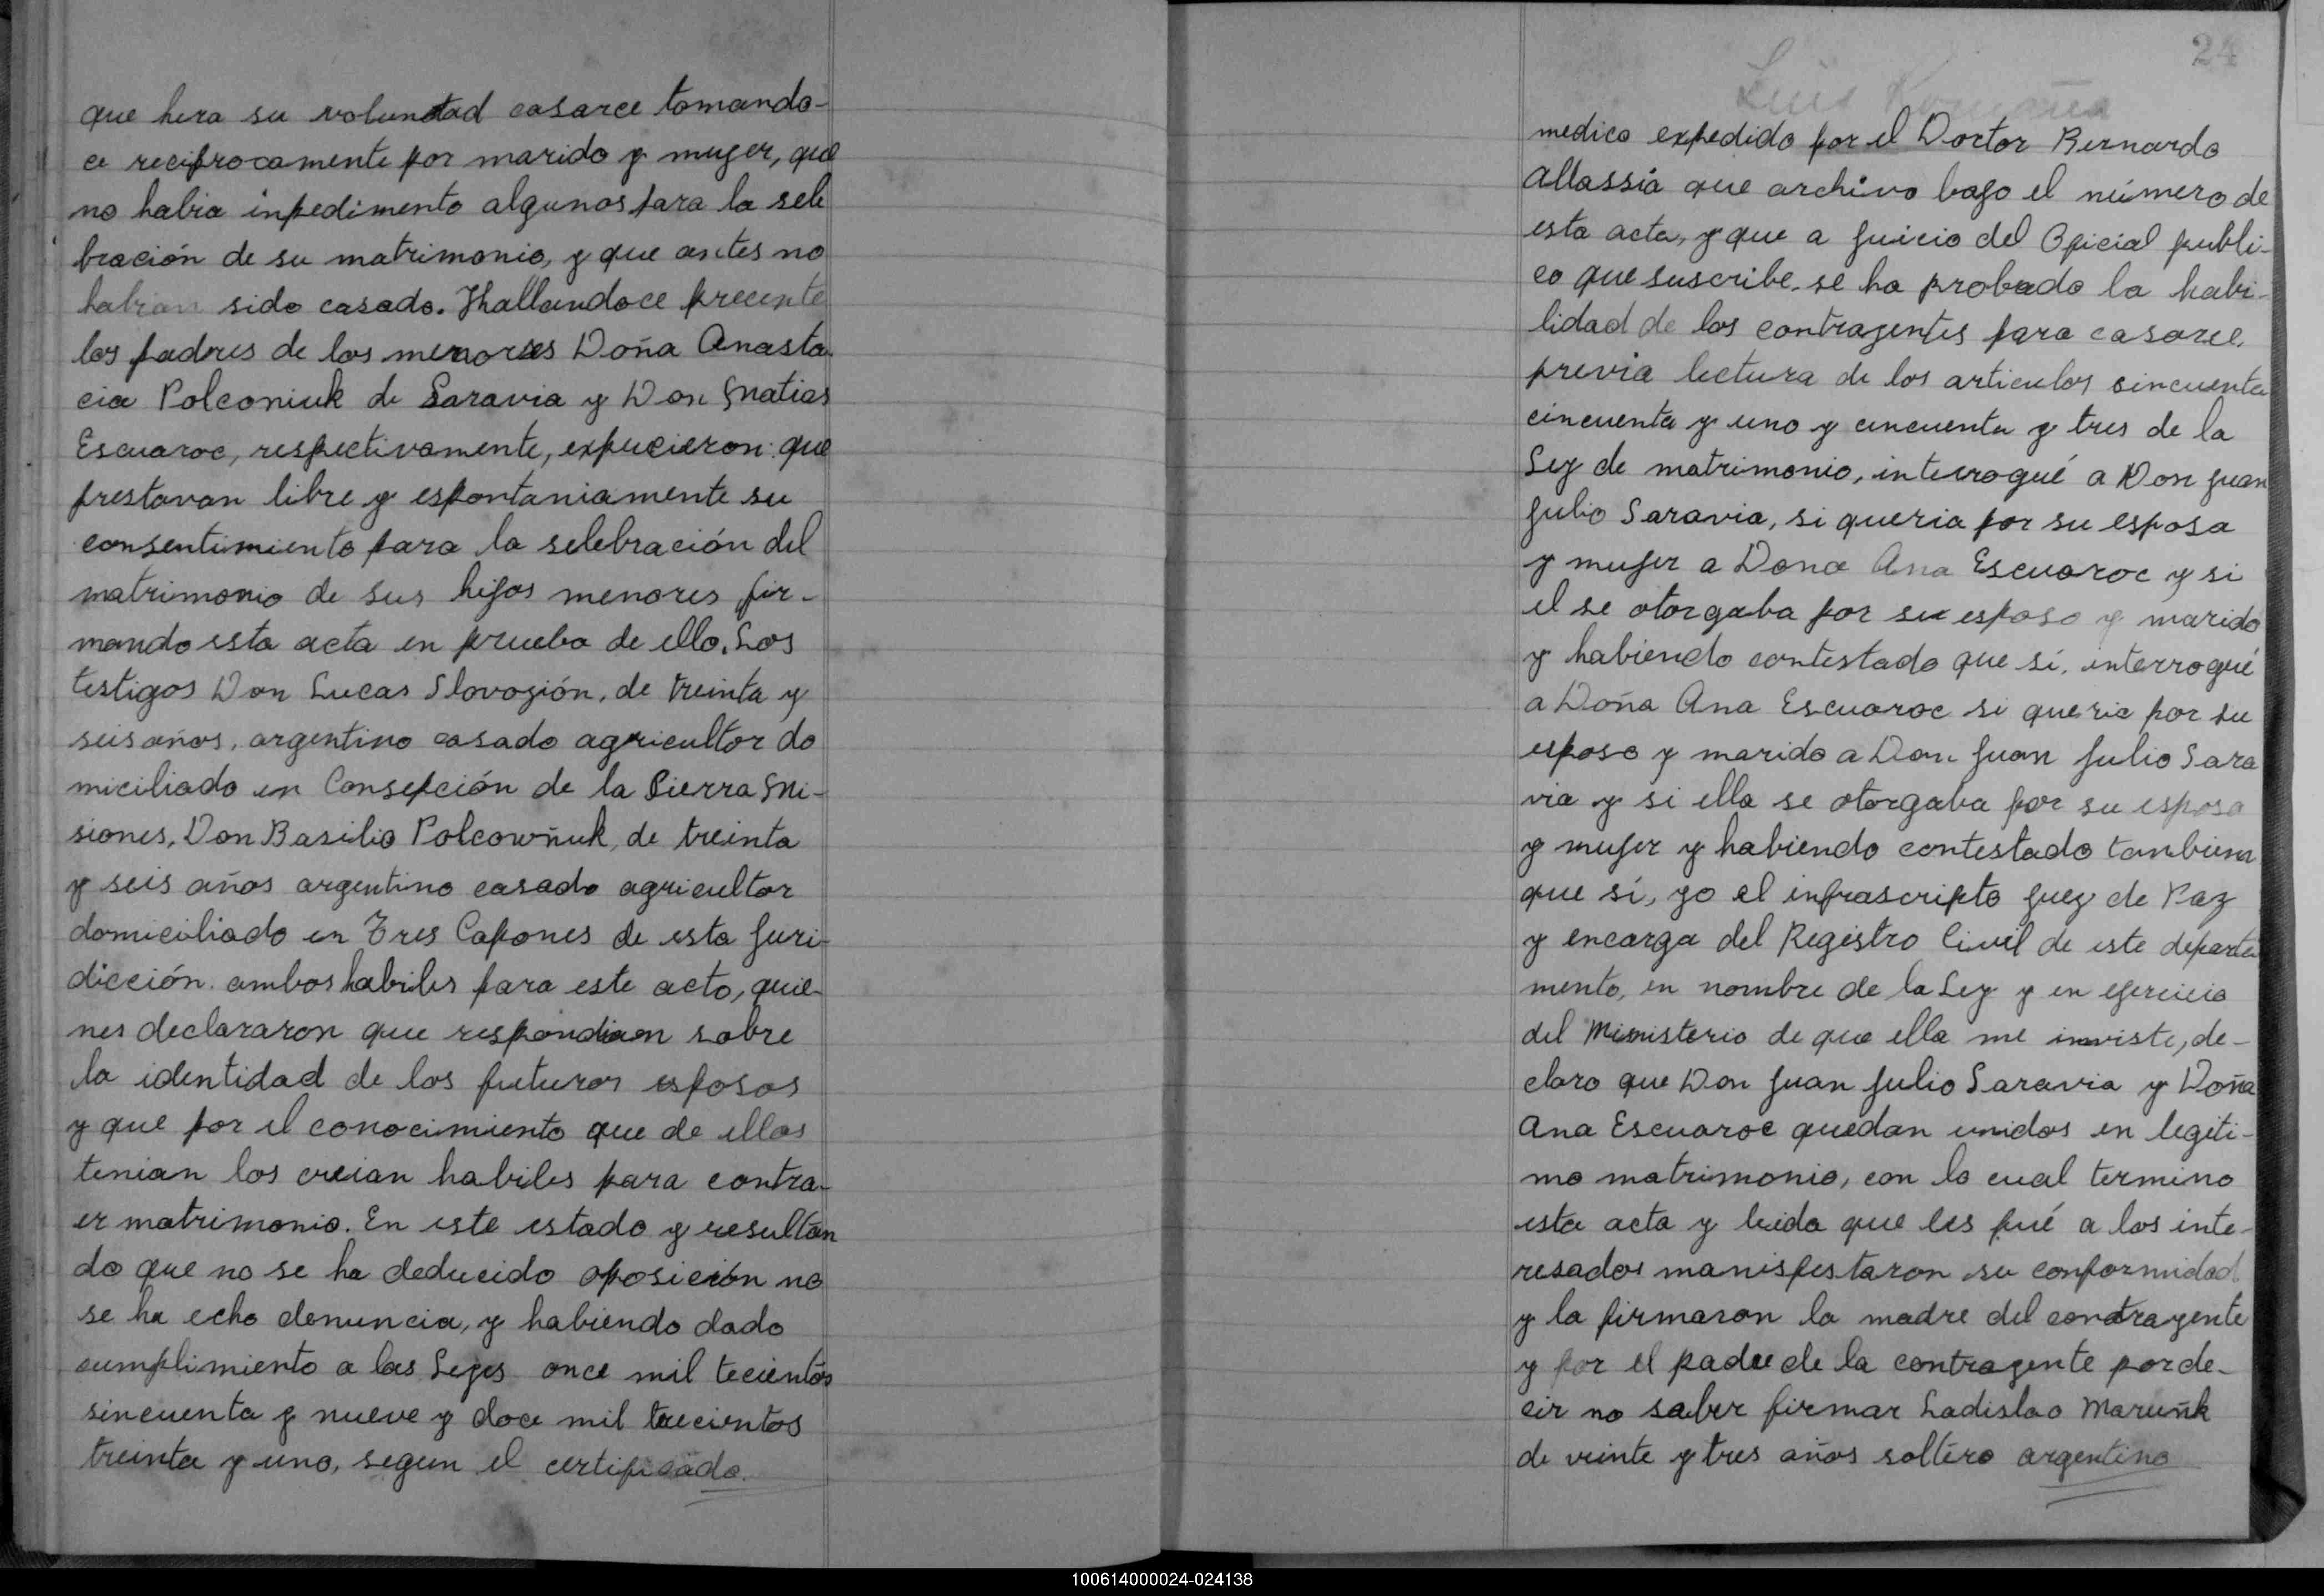 que hera su voluntad casarce tomando-
ce reciprocamente por marido y muger, que
no habia inpedimento algunos para la sele
bración de su matrimonio, y que antes no
habian sido casado. Hallandoce precente
los padres de los menores Doña Anasta
cia Polconiuk de Saravia y Don Matias
Escuaroc, respectivamente, expucieron: que
prestavan libre y espontaniamente su
consentimiento para la selebración del
matrimonio de sus hijos menores fir-
mando esta acta en prueba de ello. Los
testigos Don Lucas Slovogión, de treinta y
seis años, argentino casado agricultor do
miciliado en Consepción de la Sierra Mi-
siones, Don Basilio Polcowñuk, de treinta
y seis años argentino casado agricultor
domiciliado en Tres Capones de esta juri-
dicción. ambos habiles para este acto, quie-
nes declararon que respondian sobre
la identidad de los futuros esposos
y que por el conocimiento que de ellos
tenian los creian habiles para contra-
er matrimonio. En este estado y resultan
do que no se ha deducido oposición no
se ha echo denuncia, y habiendo dado
cumplimiento a las Leyes once mil tecientos
sincuenta y nueve y doce mil trecientos
treinta y uno, segun el certificado.
24
Luis
medico expedido por el Doctor Bernardo
Allassia que archivo bajo el número de
esta acta, y que a juicio del Oficial publi-
co que suscribe. se ha probado la habi-
lidad de los contragentes para casarce.
previa lectura de los articulos sincuenta
cincuenta y uno y cincuenta y tres de la
Ley de matrimonio, interrogué a Don Juan
Julio Saravia, si queria por su esposa
y mujer a Dona Ana Escuaroc y si
el se otorgaba por su esposo y marido
y habiendo contestado que sí, interrogué
a Doña Ana Escuaroc si queria por su
esposo y marido a Don Juan Julio Sara
via y si ella se otorgaba por su esposa
y mujer y habiendo contestado tambien
que sí, yo el infrascripto Juez de Paz
y encarga del Registro Civil de este departa
mento, en nombre de la Ley y en ejercicio
del Ministerio de que ella me inviste, de-
claro que Don Juan Julio Saravia y Doña
Ana Escuaroc quedan unidos en legiti-
mo matrimonio, con lo cual termino
esta acta y leida que les fué a los inte-
resados manisfestaron su conformidad
y la firmaron la madre del contragente
y por el padre de la contragente por de-
cir no saber firmar Ladislao Maruñk
de veinte y tres años soltero argentino
100614000024-024138